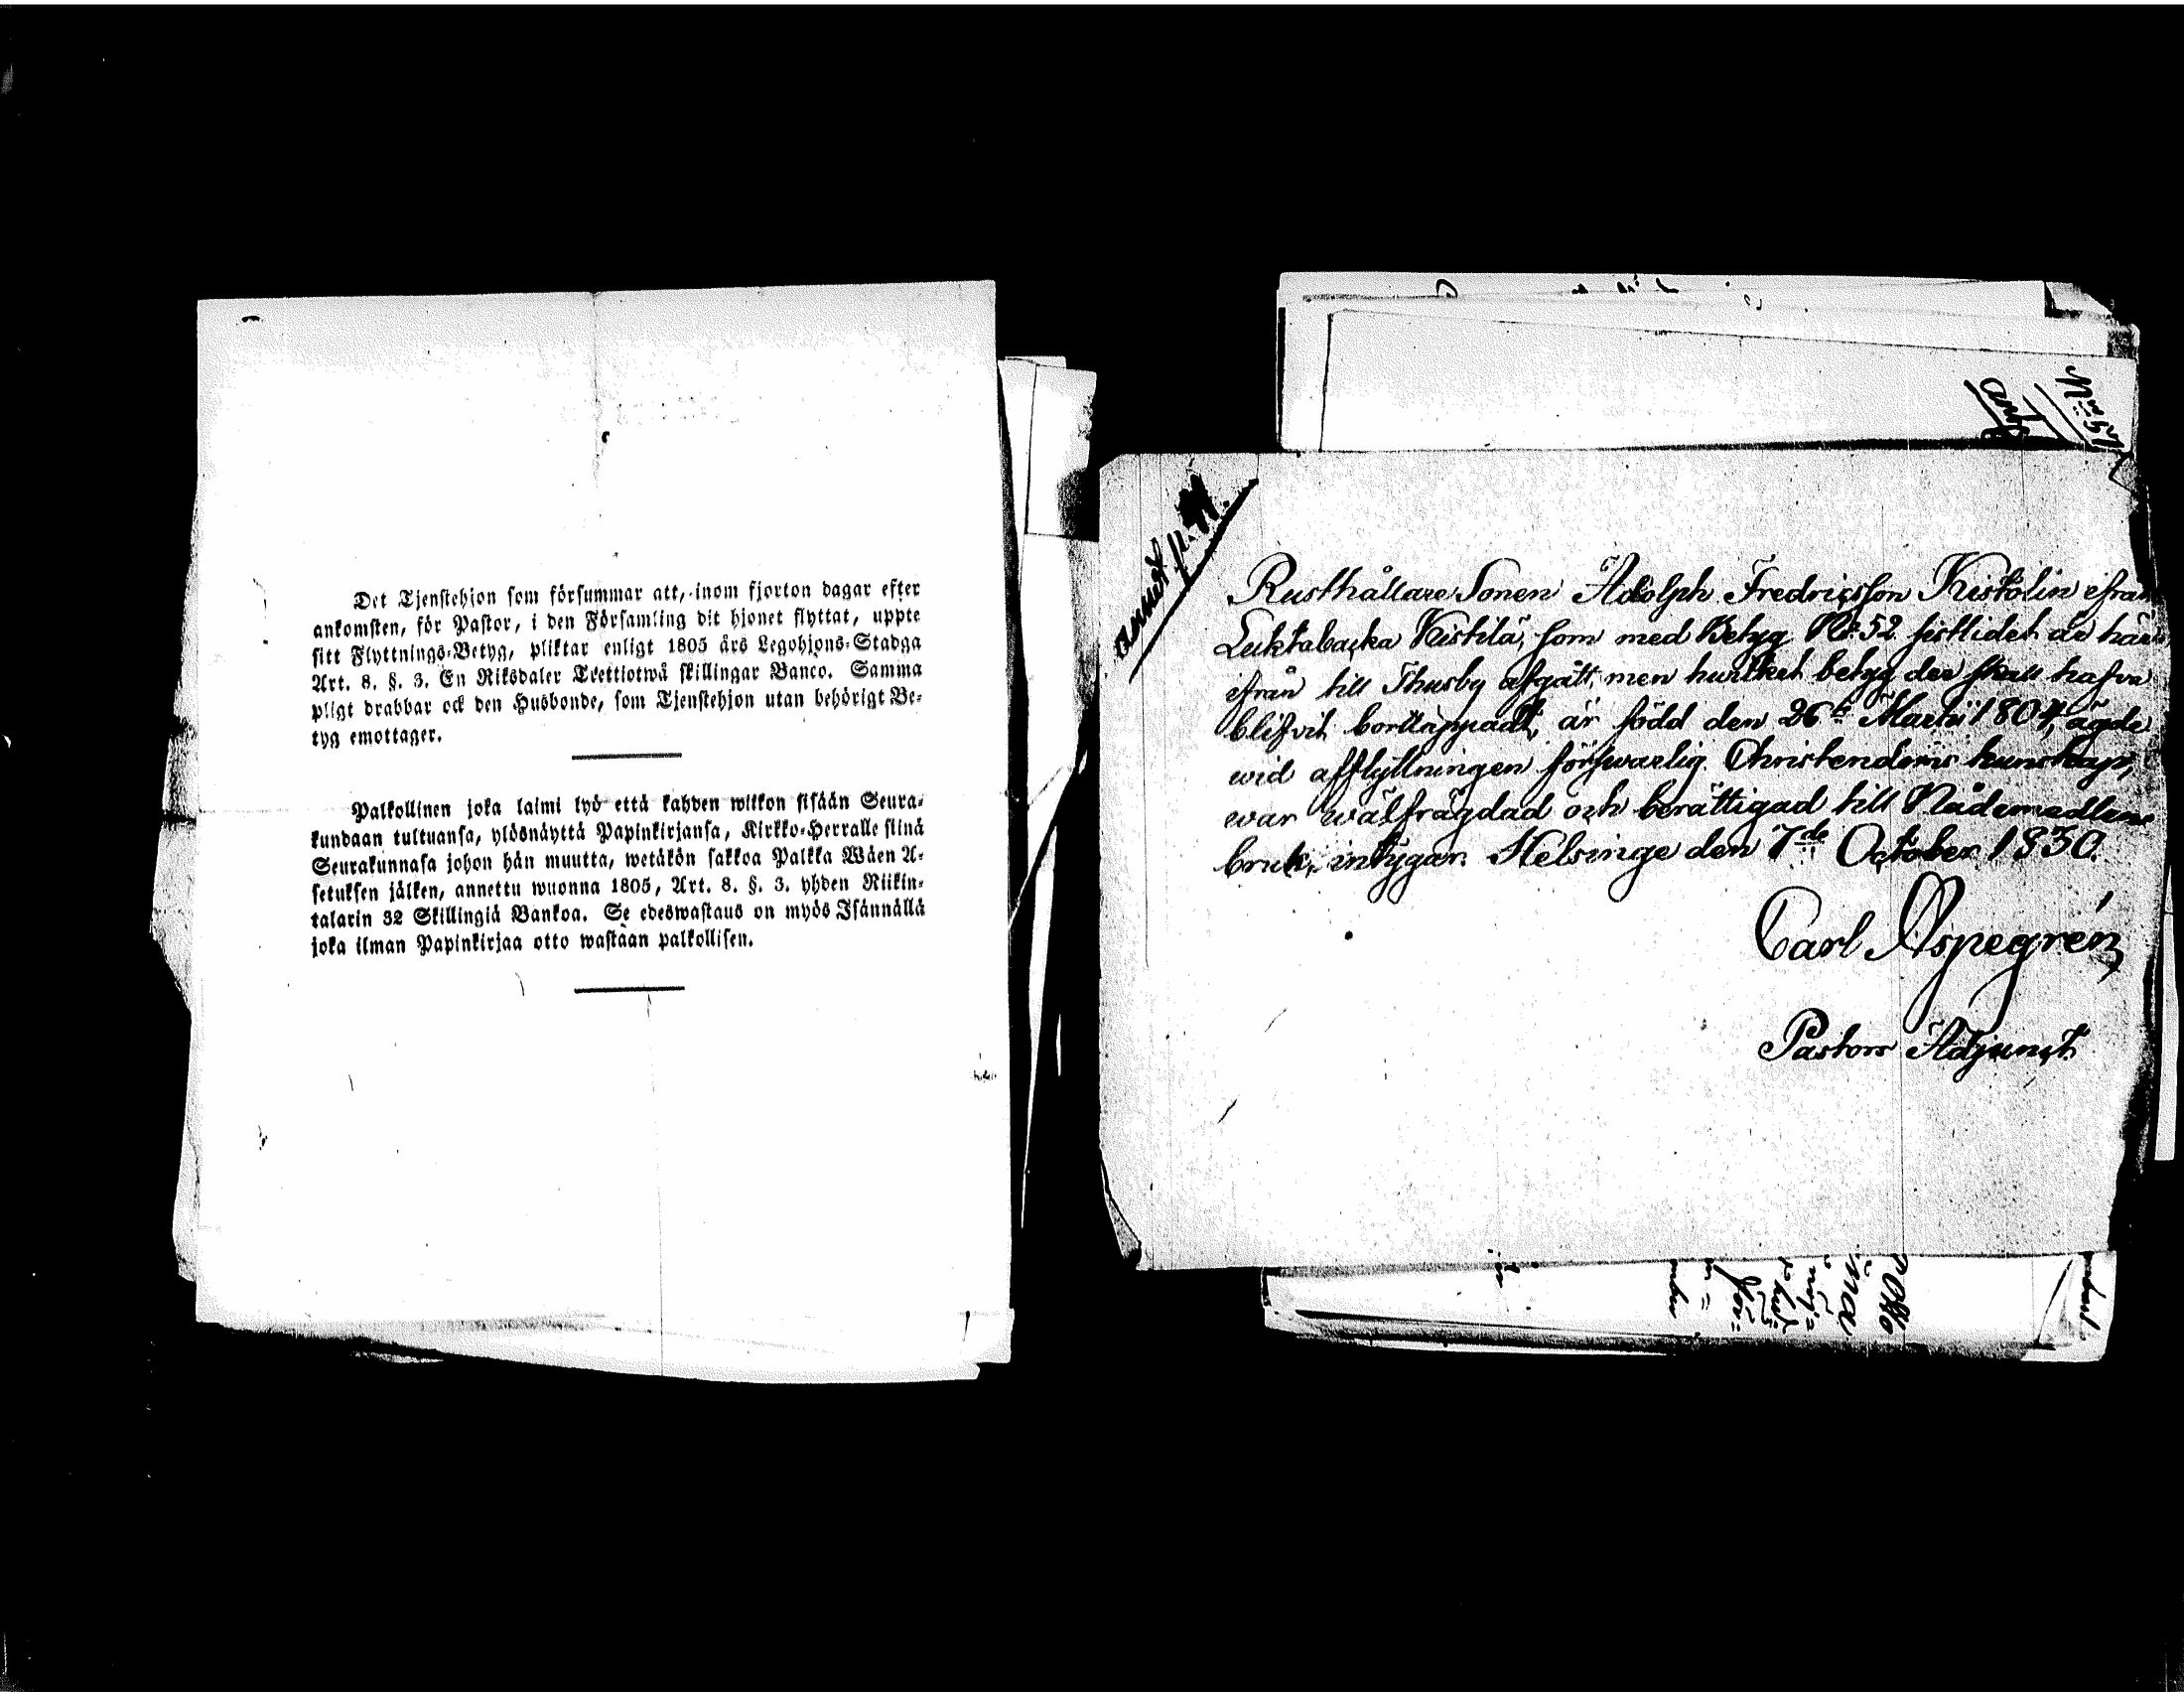 Det Tjenstehjon som försummar att, inom fjorton dagar efter
ankomsten, för Pastor, i den Församling dit hjonet flyttat, uppte
sitt Flyttnings-Betyg, pliktar enligt 1805 års Legohjons-Stadga
Art. 8. §. 3. En Riksdaler Trettiotwå skillingar Banco. Samma
pligt drabbar ock den Husbonde, som Tjenstehjon utan behörigt Be-
tyg emottager.
Palkollinen joka laimi lyö että kahden wiikon sisään Seura-
kundaan tultuansa, ylösnäyttä Papinkirjansa, Kirkko-Herralle siinä
Seurakunnasa johon hän muutta, wetäkön sakkoa Palkka Wäen A-
setuksen jälken, annettu wuonna 1805, Art. 8. §. 3. yhden Riikin-
talarin 32 Skillingiä Bankoa. Se edeswastaus on myös Isännällä
joka ilman Papinkirjaa otto wastaan palkollisen.
No 57
Rusthållare Sonen Adolph Fredricsson Kistolin ifrån
Luktabacka Kistilä, som med Betyg No 52 sistlidet år här
ifrån till Thusby afgått, men hwilket betyg der skall hafva
blifvit borttappadt, är född den 26te Martii 1804, ägde
wid afflyttningen försvarlig Christendoms kunskap,
war wälfrägdad och berättigad till Nådemedlens
bruk, intygar. Helsinge den 7de October 1830.
Carl Aspegrén
Pastors Adjunct